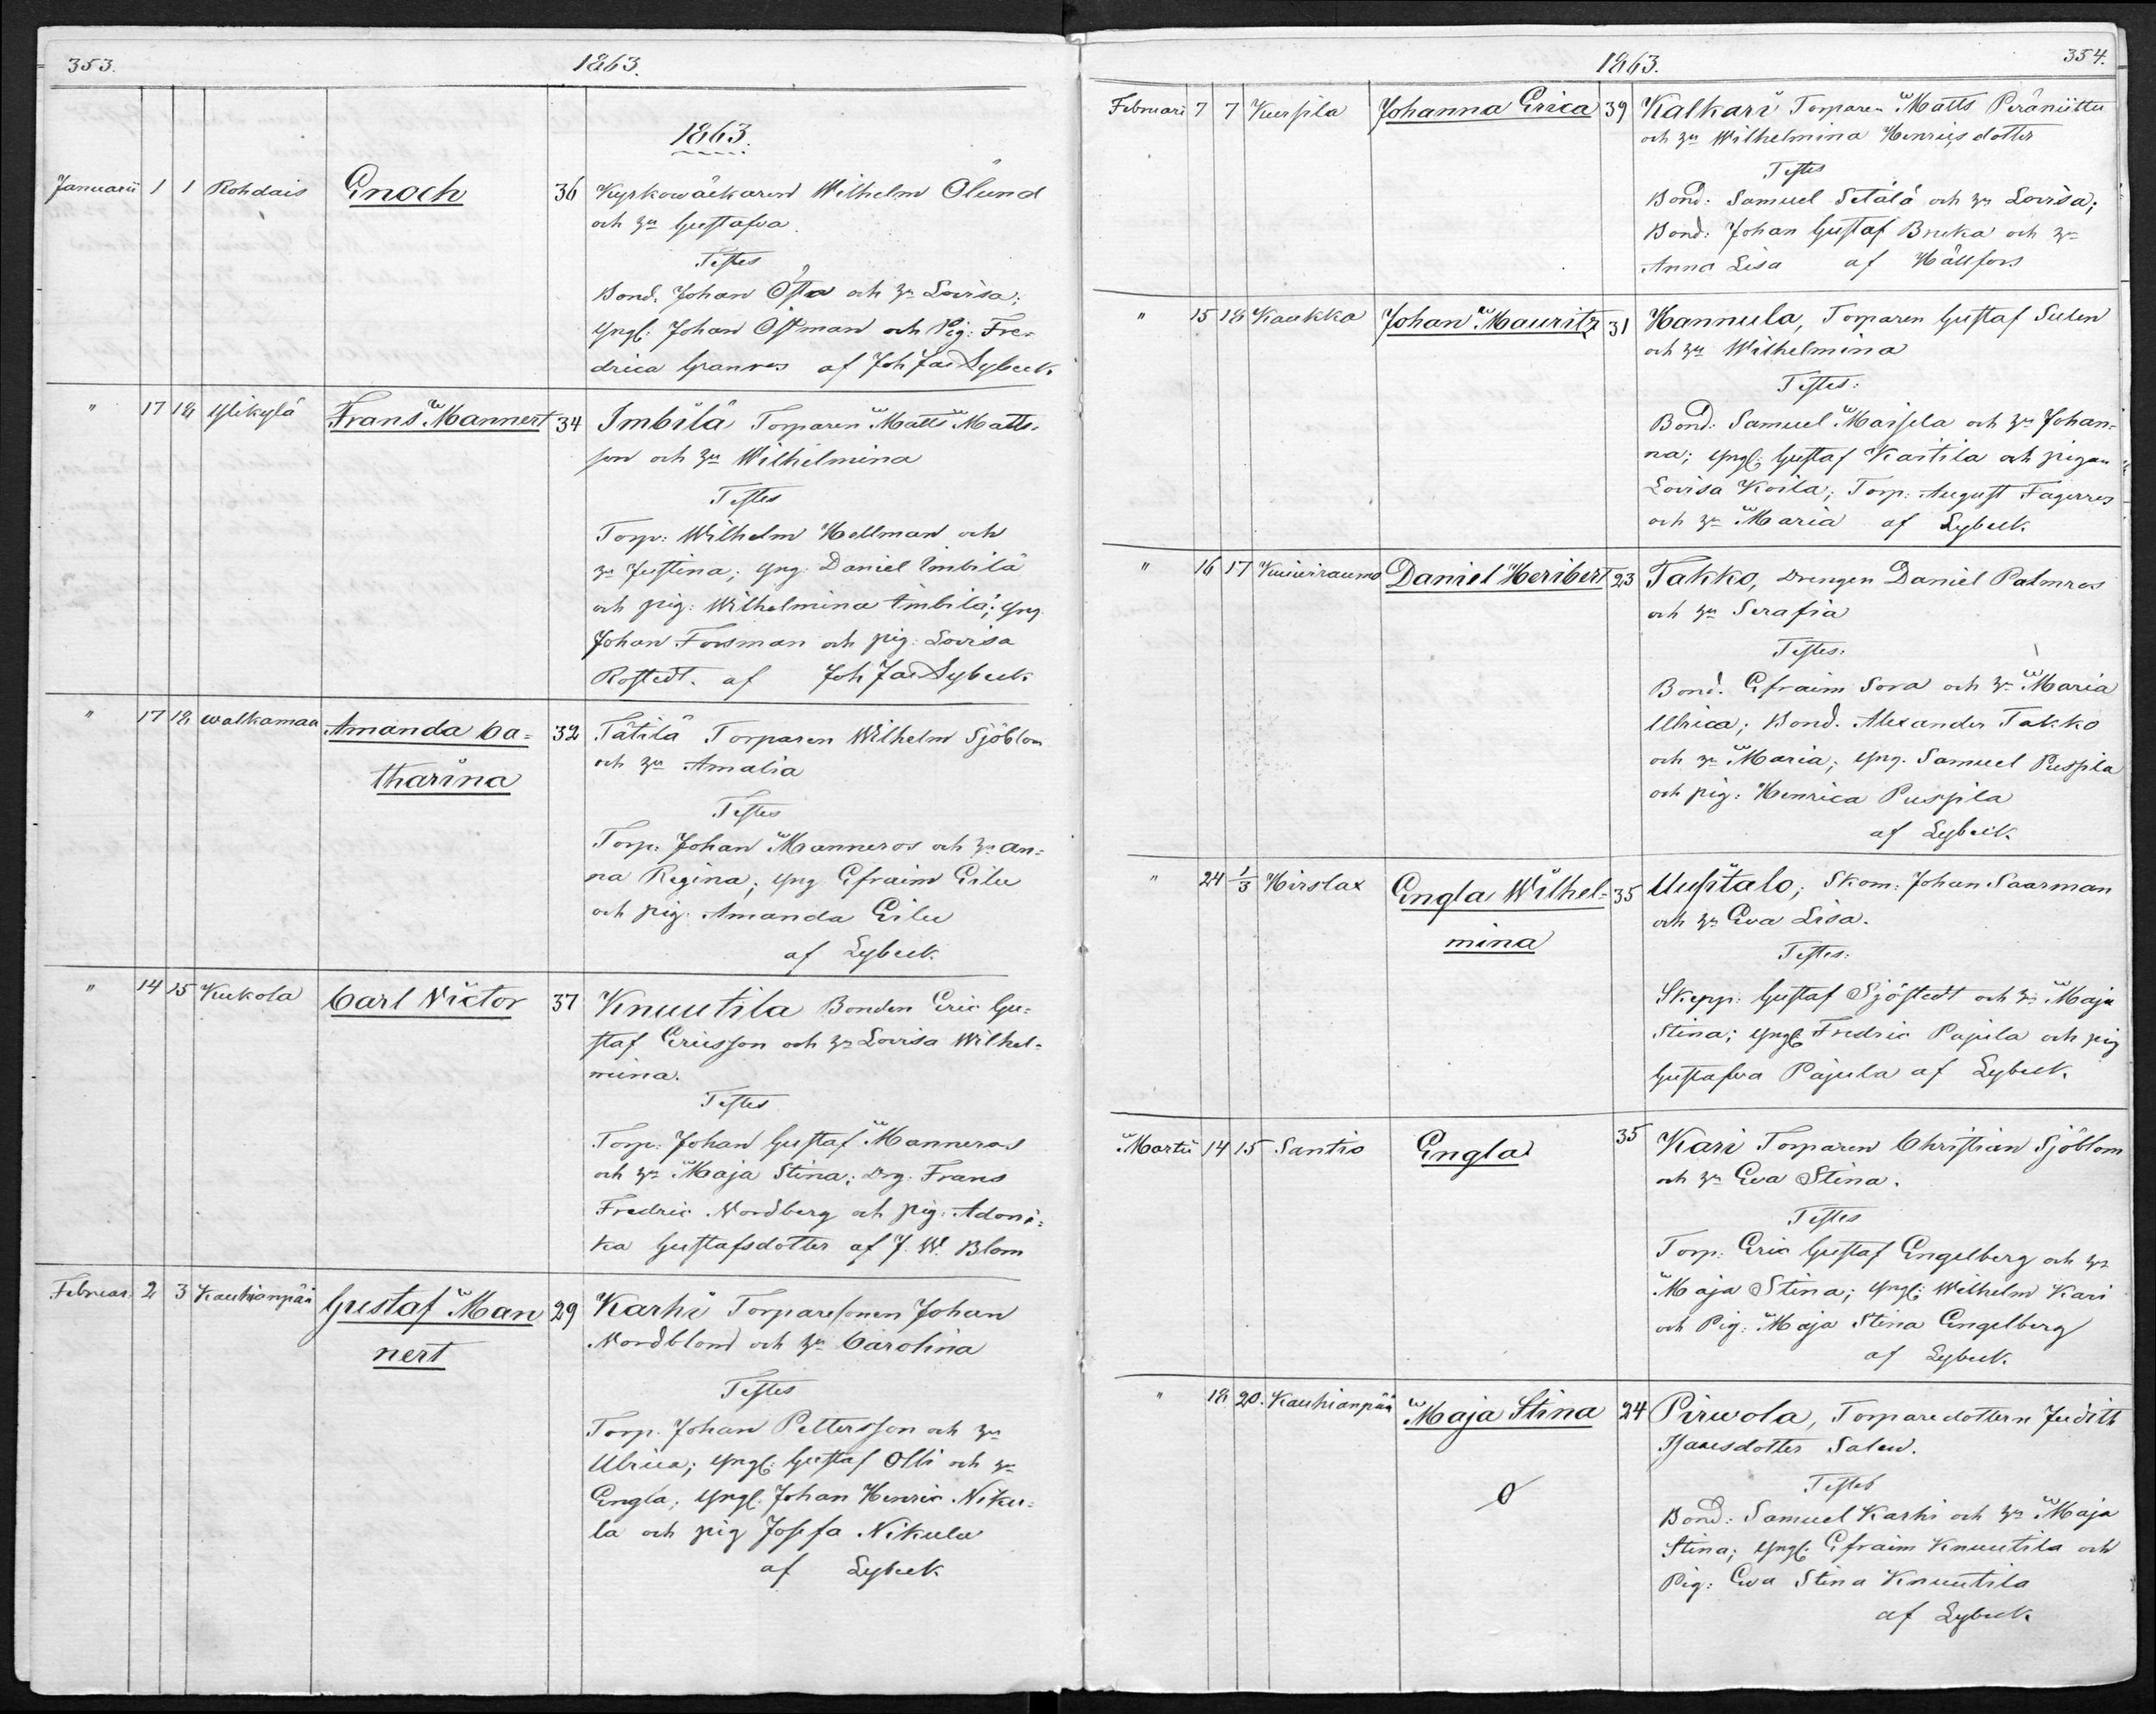 353.
1863.
1863.
Januarii 1 1 Rohdais Enoch 36 Kyrkowäktaren Wilhelm Ölund
och hu Gustafva.
Testes
Bond. Johan Östa och hu Lovisa;
Yngl: Johan Östman och Pig: Fre-
drica Granroos af Joh Jac Lybeck.
" 17 18 Ylikylä Frans Mannert 34 Imbilä Torparen Matts Matts-
son och hu Wilhelmina
Testes
Torp: Wilhelm Hellman och
hu Justina; Yng. Daniel Imbilä
och pig: Wilhelmina Imbilä; Yng.
Johan Forsman och pig: Lovisa
Rostedt. af Joh Jac Lybeck
" 17 18 Walkamaa Amanda Ca= 32 Tätilä Torparen Wilhelm Sjöblom
tharina
och hu Amalia
Testes
Torp: Johan Manneros och hu An=
na Regina; Yng Efraim Eilu
och pig: Amanda Eilu
af Lybeck.
" 14 15 Kukola Carl Victor 37 Knuutila Bonden Eric Gu=
staf Ericsson och hu Lovisa Wilhel=
mina.
Testes
Torp: Johan Gustaf Manneros
och hu Maja Stina; Drg: Frans
Fredric Nordberg och pig: Adoni=
ka Gustafsdotter af J. W. Blom
Februar. 2 3 Kauhianpää Gustaf Man 29 Karhi Torparesonen Johan
nert
Nordblom och hu Carolina
Testes
Torp. Johan Pettersson och hu
Ulrica; Yngl: Gustaf Olli och hu
Engla; Yngl. Johan Henric Niku=
la och pig Josefa Nikula
af Lybeck
1863.
354.
Februari 7 7 Kurjila Johanna Erica 39 Kalkari Torparen Matts Peräniittu
och hu Wilhelmina Henricsdotter
Testes
Bond: Samuel Setälä och hu Lovisa;
Bond: Johan Gustaf Bruka och hu
Anna Lisa af Hällfors
" 15 18 Kaukka Johan Mauritz 31 Hannula, Torparen Gustaf Sulen
och hu Wilhelmina
Testes:
Bond: Samuel Maijsela och hu Johan=
na; Yngl: Gustaf Kaitila och pigan
Lovisa Koila; Torp: August Fagerroos
och hu Maria af Lybeck.
" 16 17 Kuiviraumo Daniel Heribert 23 Takko, Drengen Daniel Palmroos
och hu Serafia
Testes.
Bond. Efraim Sora och hu Maria
Ulrica; Bond. Alexander Takko
och hu Maria; Yng. Samuel Puspila
och pig: Henrica Puspila
af Lybeck.
" 24 1/3 Hirslax Engla Wilhel= 35 Uusitalo; Skom: Johan Saarman
mina
och hu Eva Lisa.
Testes:
Skepp: Gustaf Sjöstedt och hu Maja
Stina; Yngl: Fredric Pajula och pig
Gustafva Pajula af Lybeck.
Martii 14 15 Santio Engla 35 Kari Torparen Christian Sjöblom
och hu Eva Stina.
Testes
Torp: Eric Gustaf Engelberg och hu
Maja Stina; Yngl: Wilhelm Kari
och Pig: Maja Stina Engelberg
af Lybeck.
" 18 20. Kauhianpää Maja Stina 24 Pirwola, Torparedottern Judith
Isacsdotter Salen.
Testes
Bond: Samuel Karhi och hu Maja
Stina; Yngl: Efraim Knuutila och
Pig: Eva Stina Knuutila
af Lybeck